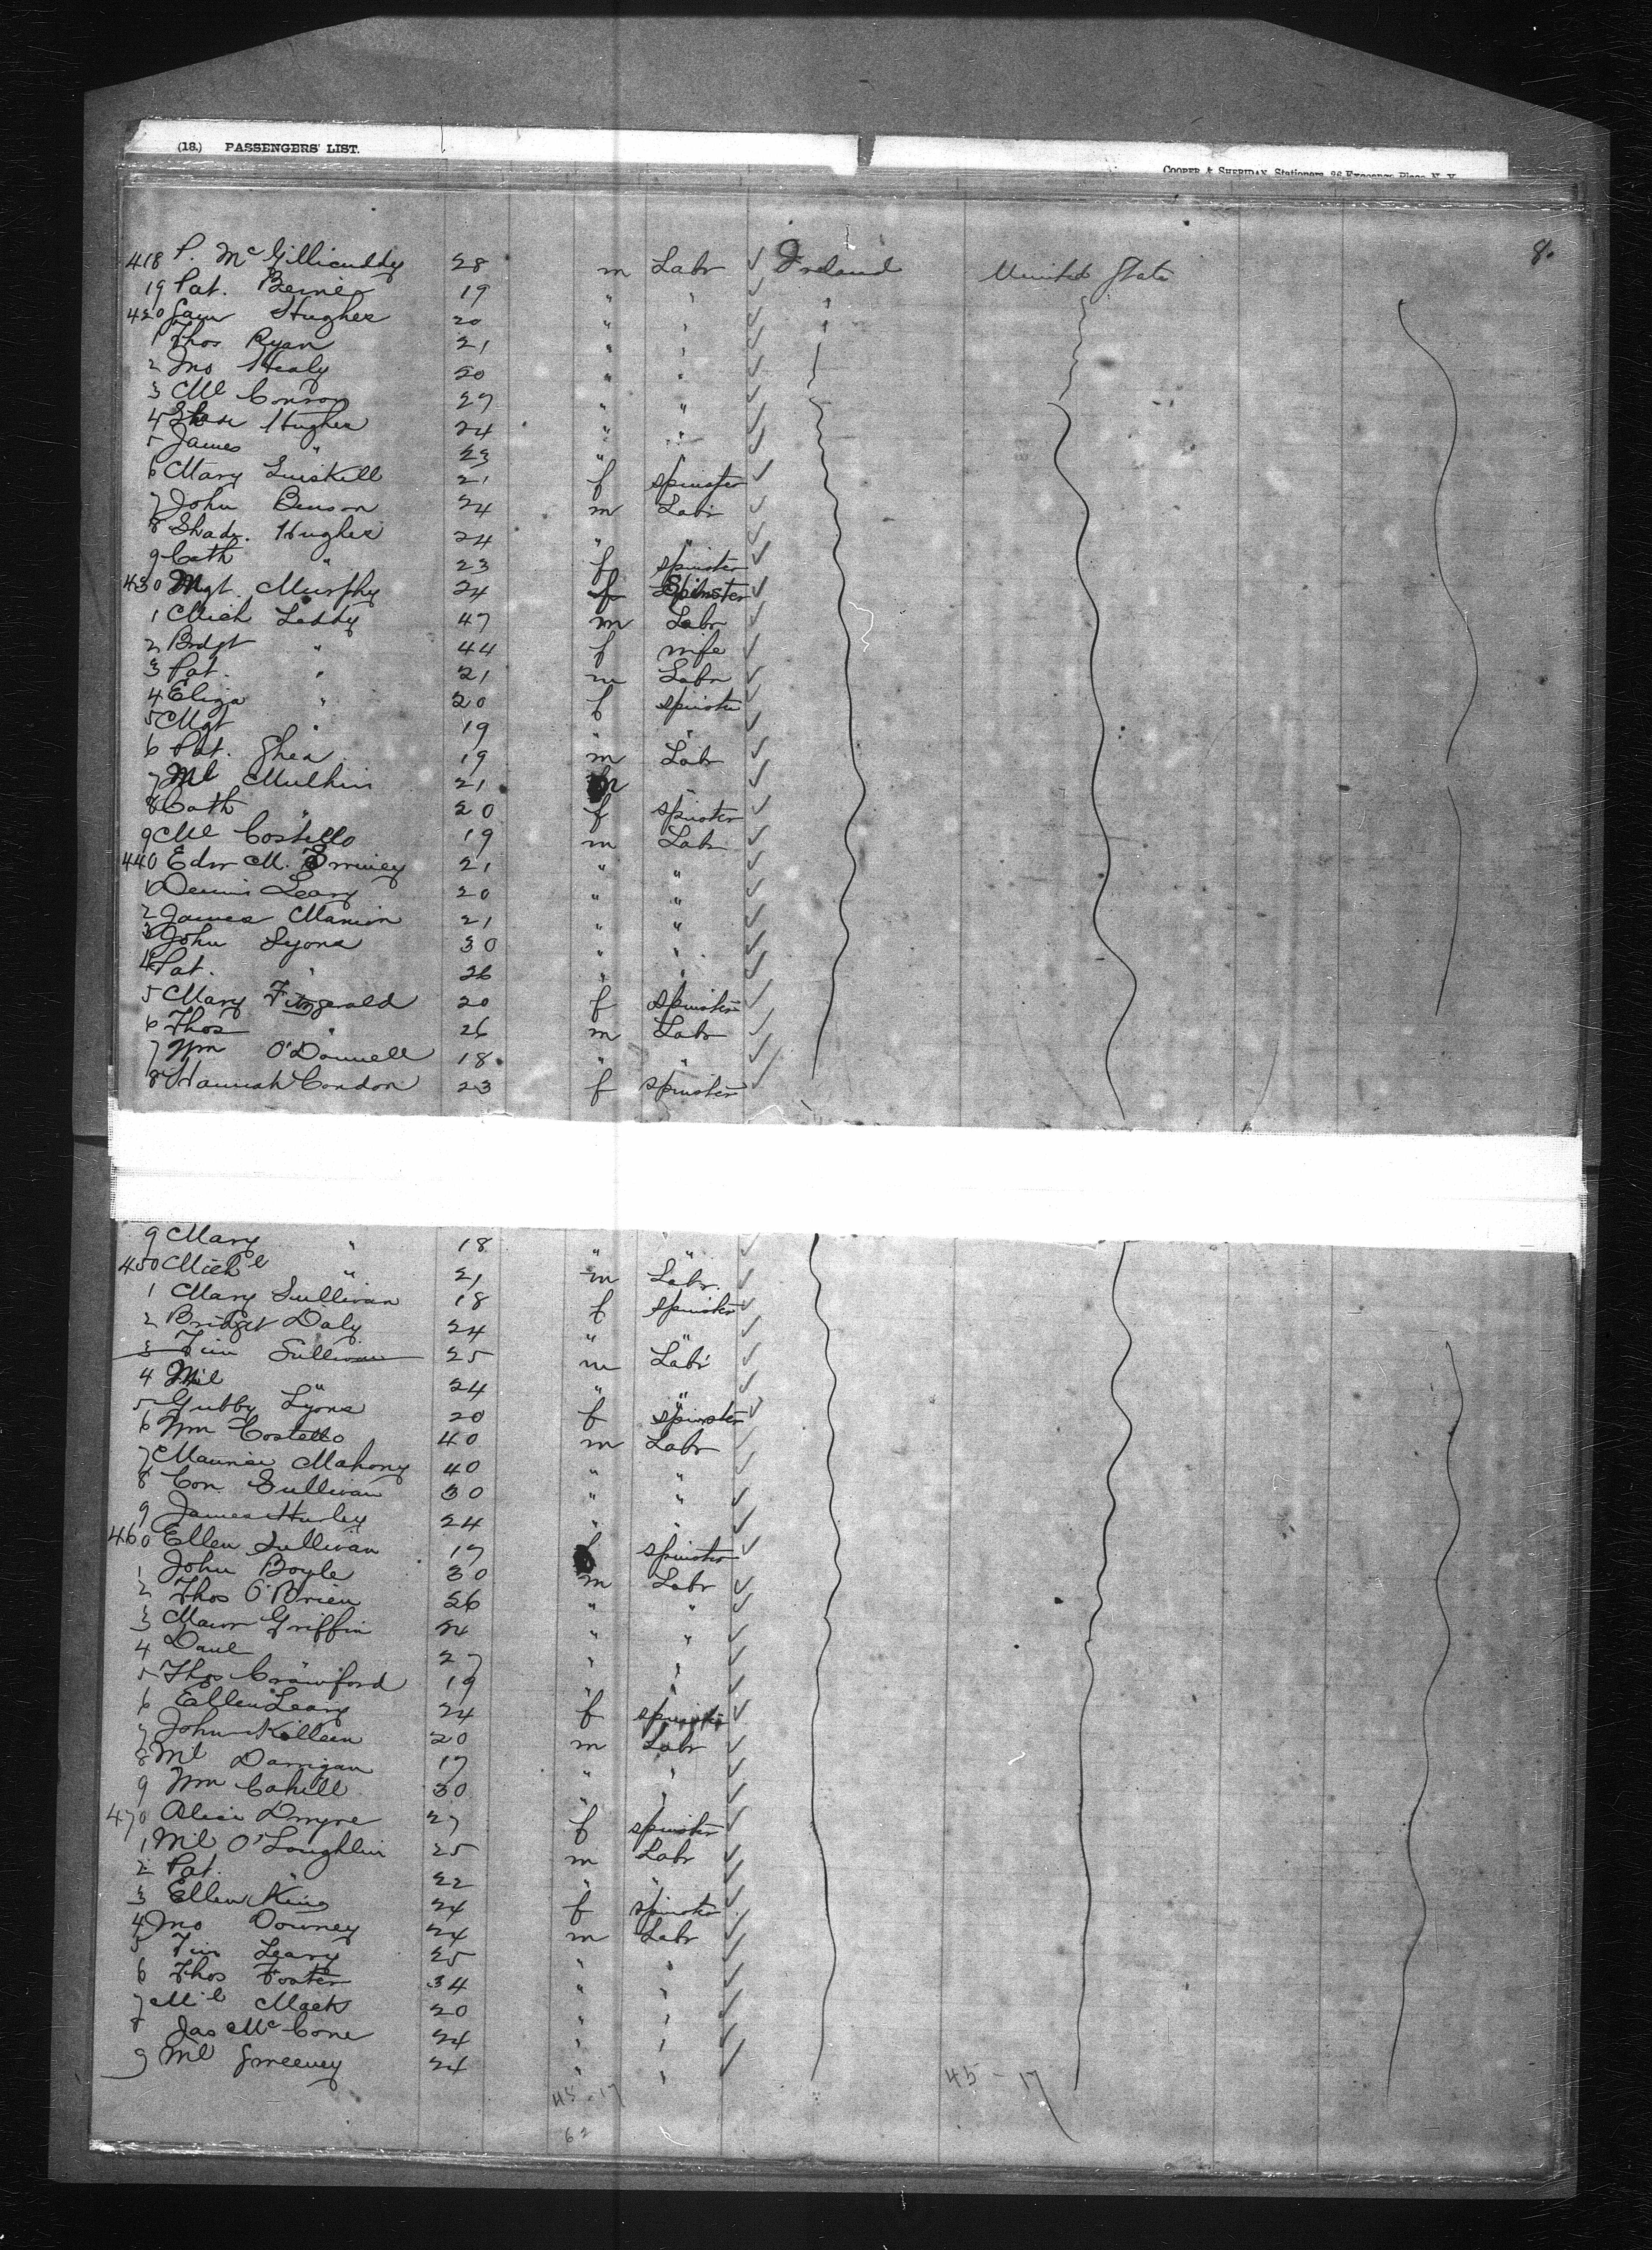 (18.) PASSENGERS' LIST.
COOPER & SHERIDAN, Stationers, 26 Exchange Place, N. Y.
8.
418 P. McGillicuddy 28 m Labr ✓ Ireland United States
19 Pat. Beirne 19 " " ✓ "
420 Sam Hughes 20 " " ✓ "
1 Thos Ryan 21 " " ✓
2 Jno Healy 20 " " ✓
3 Ml Conroy 27 " " ✓
4 Hughes 24 " " ✓
5 James " 23 " " ✓
6 Mary Luiskill 21 f spinster ✓
7 John Benson 24 m Labr ✓
8 Shadr. Hughes 24 " " ✓
9 Cath " 23 f spinster ✓
430 Mgt. Murphy 24 f Spinster ✓
1 Mich Leddy 47 m Labr ✓
2 Brdgt " 44 f wife ✓
3 Pat. " 21 m Labr ✓
4 Eliza " 20 f spinster ✓
5 Mgt " 19 " " ✓
6 Pat. Shea 19 m Labr ✓
7 Ml Mulhin 21 m " ✓
8 Cath " 20 f spinster ✓
9 Ml Costello 19 m Labr ✓
440 Edw M. 21 " " ✓
1 Dennis Leary 20 " " ✓
2 James Manion 21 " " ✓
3 John Lyons 30 " " ✓
4 Pat. " 26 " " ✓
5 Mary Fitzgerald 20 f spinster ✓
6 Thos " 26 m Labr ✓
7 Wm O'Donnell 18 " " ✓
8 Hannah Condon 23 f spinster ✓
9 Mary " 18 " " ✓
450 Michl " 21 m Labr ✓
1 Mary Sullivan 18 f spinster ✓
2 Bridget Daly 24 " " ✓
3 Tim Sullivan 25 m Labr ✓
4 Ml " 24 " " ✓
5 Gubby Lyons 20 f spinster ✓
6 Wm Costello 40 m Labr ✓
7 Maurice Mahony 40 " " ✓
8 Con. Sullivan 30 " " ✓
9 James Hurley 24 " " ✓
460 Ellen Sullivan 17 f spinster ✓
1 John Boyle 30 m Labr ✓
2 Thos O'Brien 26 " " ✓
3 Maur Griffin 24 " " ✓
4 Danl " 27 " " ✓
5 Thos Crawford 19 " " ✓
6 Ellen Leary 24 f spinster ✓
7 John Killeen 20 m Labr ✓
8 Ml Darrigan 17 " " ✓
9 Wm Cahill 30 " " ✓
470 Alice Dwyre 27 f spinster ✓
1 Ml O'Loughlin 25 m Labr ✓
2 Pat. " 22 " " ✓
3 Ellen King 24 f spinster ✓
4 Jno Downey 24 m Labr ✓
5 Tim Leary 25 " " ✓
6 Thos Foster 34 " " ✓
7 Ml Mack 20 " " ✓
8 Jas McCone 24 " " ✓
9 Ml Sweeney 24 " " ✓
45-17 45-17
62